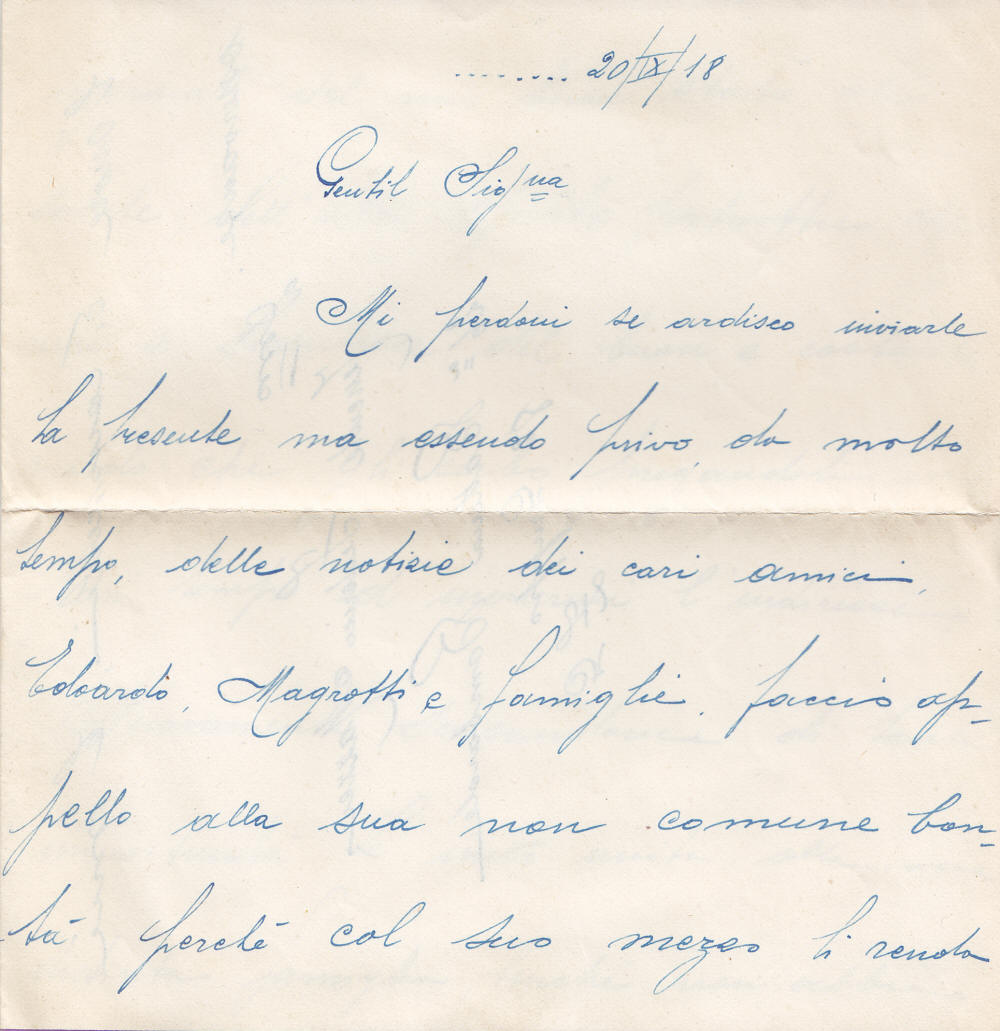 ........ 20/IX/18
Gentil Sig/na
Mi perdoni se ardisco inviarle
la presente ma essendo privo, da molto
tempo, delle notizie dei cari amici,
Edoardo, Magrotti e famiglie, faccio ap-
pello alla sua non comune bon-
tà perchè col suo mezzo li renda